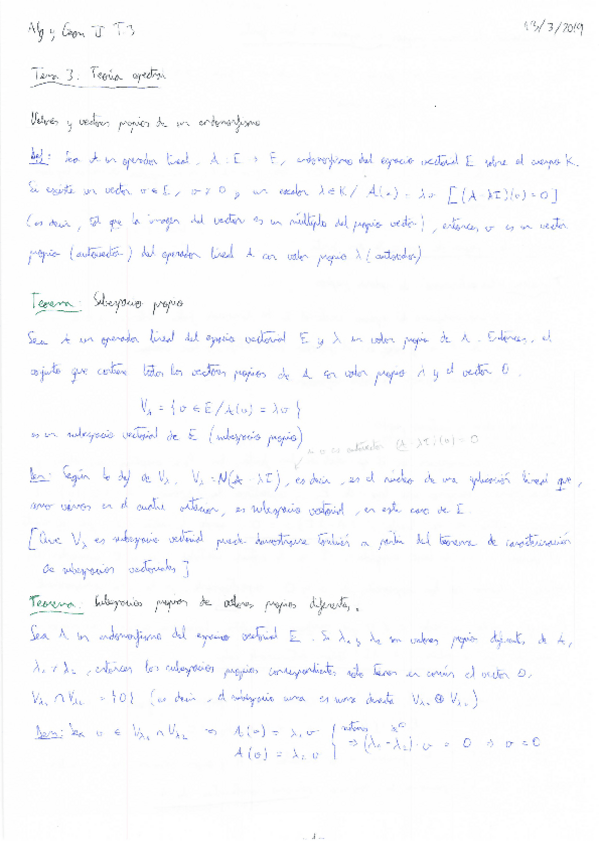 Alg y Geom II T.3 13/3/2019
Tema 3. Teoría espectral
Valores y vectores propios de un endomorfismo
Def: Sea A un operador lineal, A: E → E, endomorfismo del espacio vectorial E sobre el cuerpo K.
Si existe un vector v ∈ E, v ≠ 0 y un escalar λ ∈ K / A(v) = λv [(A - λI)(v) = 0]
(es decir, tal que la imagen del vector es un múltiplo del propio vector), entonces v es un vector
propio (autovector) del operador lineal A con valor propio λ (autovalor)
Teorema: Subespacio propio
Sea A un operador lineal del espacio vectorial E y λ un valor propio de A. Entonces, el
conjunto que contiene todos los vectores propios de A con valor propio λ y el vector 0,
Vλ = {v ∈ E / A(v) = λv}
es un subespacio vectorial de E (subespacio propio)
v es autovector (A - λI)(v) = 0
Dem: Según la def de Vλ, Vλ = N(A - λI), es decir, es el núcleo de una aplicación lineal que,
como vemos en el cuatri anterior, es subespacio vectorial, en este caso de E.
[Que Vλ es subespacio vectorial puede demostrarse también a partir del teorema de caracterización
de subespacios vectoriales]
Teorema: Subespacios propios de valores propios diferentes.
Sea A un endomorfismo del espacio vectorial E. Si λ₁ y λ₂ son valores propios diferentes de A,
λ₁ ≠ λ₂, entonces los subespacios propios correspondientes sólo tienen en común el vector 0.
Vλ₁ ∩ Vλ₂ = {0} (es decir, el subespacio suma es suma directa Vλ₁ ⊕ Vλ₂)
Dem: Sea v ∈ Vλ₁ ∩ Vλ₂ ⇒ A(v) = λ₁v
A(v) = λ₂v } restamos ⇒ (λ₁ - λ₂)·v = 0 ⇒ v = 0
-1-